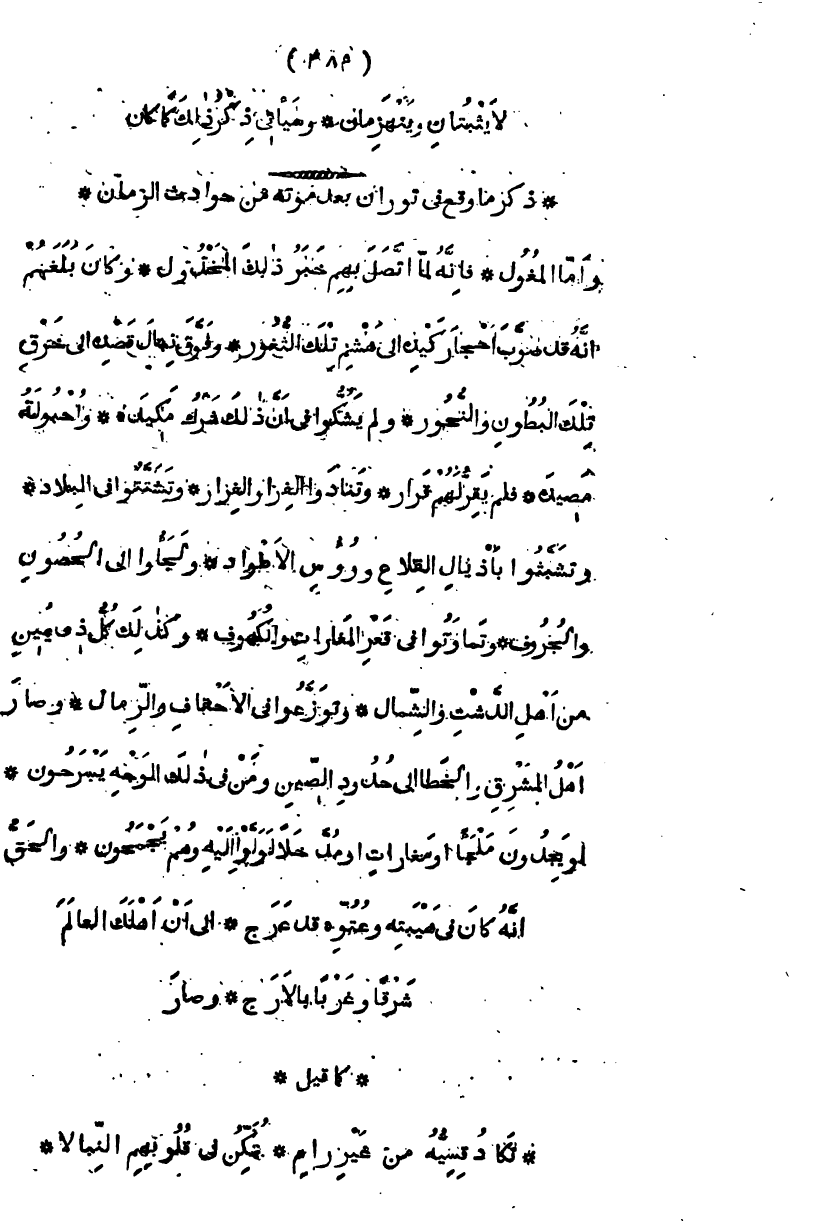 (٣٨٢)
لَا يَثْبُتَانِ وَيَنْهَزِمَانِ * وَهَيَأْتِي ذِكْرُ ذٰلِكَ كَمَا كَانَ
* ذكر ما وقع في توران بعد موته من حوادث الزمان *
وَأَمَّا المُغُول * فَإِنَّهُ لَمَّا اتَّصَلَ بِهِم خَبَرُ ذٰلِكَ المَخْذُول * وَكَانَ بَلَغَهُمْ
انَّهُ قد صَوَّبَ أَحْجَارَ كَيْدِهِ الى هَشْمِ تِلْكَ الثُّغُور * وَفَوَّقَ نِبَالَ قَصْدِهِ الى خَرْقِ
تِلْكَ البُطُونِ وَالنُّحُور * ولم يَشُكُّوا فى انَّ ذٰلكَ شَرَكُ مَكِيدَه * وَأُحْبُولَةُ
مَصِيدَه * فلم يَقِرَّ لَهُمْ قَرَار * وَتَنَادَوا الفِرار الفِرار * وَتَشَتَّتُوا فى البِلاد *
وتَشَبَّثُوا بأَذْيالِ القِلاعِ ورُؤُسِ الأَطْواد * ولَجَأُوا الى الحُصُونِ
والجُرُوف * وتَماوَتُوا فى قَعْرِ المَغاراتِ والكُهُوف * وكذٰلك كُلُّ ذى مَيْنٍ
من أَهلِ الدَّشْتِ والشِّمال * وتَوَزَّعُوا فى الأَحْقافِ والرِّمال * وصارَ
أَهْلُ المَشْرِقِ والخَطا الى حُدُودِ الصِّينِ ومَنْ فى ذٰلك الوَجْهِ يَسْرَحُون *
لو يَجِدُونَ مَلْجَأً او مَغاراتٍ او مُدَّخَلًا لَوَلَّوْا إِلَيْهِ وهُمْ يَجْمَحُون * والحَقُّ
انَّهُ كانَ فى هَيْبَتِه وعُتُوِّه قد عَرَج * الى أَنْ أَهْلَكَ العالَمَ
شَرْقًا وغَرْبًا بالأَرَج * وصارَ
* كما قيل *
* تَكادُ قِسِيُّهُ من غَيْرِ رامٍ * تُمَكِّنُ فى قُلُوبِهِم النِّبالا *